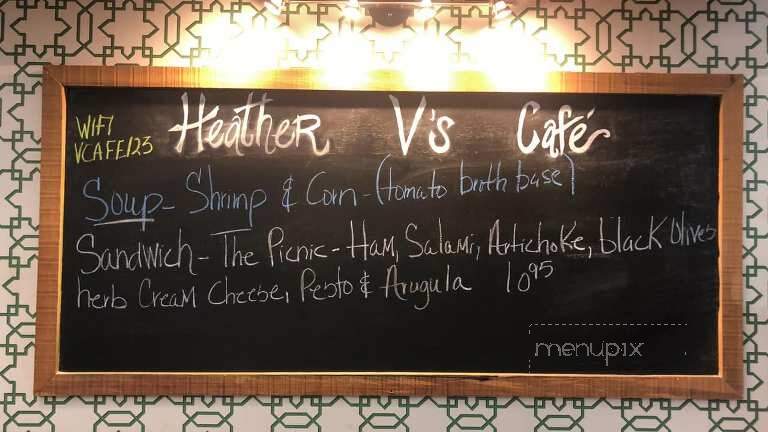 Heather V's Café
WIFI
VCAFE123
Soup- Shrimp & Corn-(tomato broth base)
Sandwich- The Picnic- Ham, Salami, Artichoke, black olives
herb Cream Cheese, Pesto & Arugula 10 95
menupix